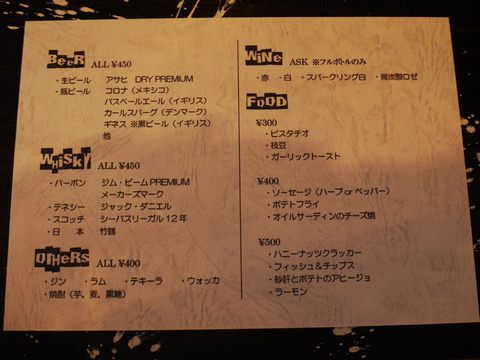 BeeR ALL ¥450
・生ビール アサヒ DRY PREMIUM
・瓶ビール コロナ（メキシコ）
バスペールエール（イギリス）
カールスバーグ（デンマーク）
ギネス ※黒ビール（イギリス）
他
WHiSKy ALL ¥450
・バーボン ジム・ビームPREMIUM
メーカーズマーク
・テネシー ジャック・ダニエル
・スコッチ シーバスリーガル12年
・日 本 竹鶴
OtHeRs ALL ¥400
・ジン ・ラム ・テキーラ ・ウォッカ
・焼酎（芋、麦、黒糖）
WiNe ASK ※フルボトルのみ
・赤 ・白 ・スパークリング白 ・微炭酸ロゼ
FOOD
¥300
・ピスタチオ
・枝豆
・ガーリックトースト
¥400
・ソーセージ（ハーブorペッパー）
・ポテトフライ
・オイルサーディンのチーズ焼
¥500
・ハニーナッツクラッカー
・フィッシュ＆チップス
・砂肝とポテトのアヒージョ
・ラーモン